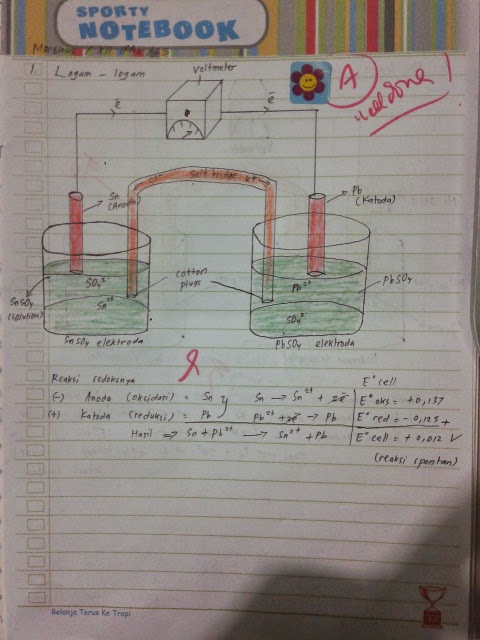 SPORTY
NOTEBOOK
1. Logam - logam
Voltmeter
A
Well done!
ē
ē
Sn
(Anoda)
salt bridge K+
Pb
(Katoda)
SO₄²⁻
Sn²⁺
SnSO₄
(solution)
cotton
plugs
Pb²⁺
SO₄²⁻
PbSO₄
SnSO₄ elektroda
PbSO₄ elektroda
Reaksi redoksnya
E° cell
(-) Anoda (oksidasi) = Sn
Sn → Sn²⁺ + 2ē
E° oks = +0,137
(+) Katoda (reduksi) = Pb
Pb²⁺ + 2ē → Pb
E° red = -0,125 +
Hasil ⇒ Sn + Pb²⁺ → Sn²⁺ + Pb
E° cell = +0,012 V
(reaksi spontan)
Belanja Terus Ke Tropi